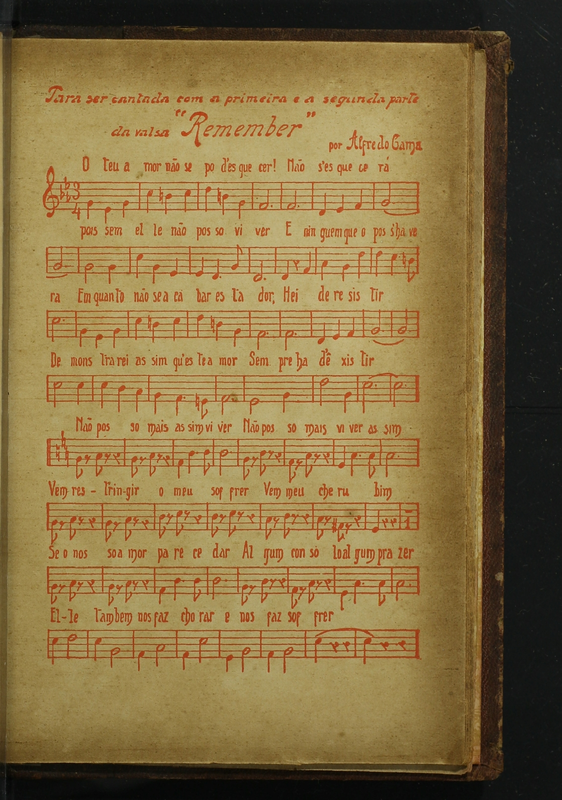 Para ser cantada com a primeira e a segunda parte
da valsa "Remember"
por Alfredo Gama
O teu a mor não se po d'es que cer! Não s'es que ce rá
pois sem el le não pos so vi ver E nin guem que o pos s'ha ve
ra Em quan to não se a ca bar es ta dor, Hei de re sis tir
De mons tra rei as sim qu'es te a mor Sem pre ha d'ê xis tir
Não pos so mais as sim vi ver Não pos so mais vi ver as sim
Vem res - trin-gir o meu sof frer Vem meu che ru bim
Se o nos so a mor pa re ce dar Al gum con sô lo al gum pra zer
El-le tambem nos faz cho rar e nos faz sof frer